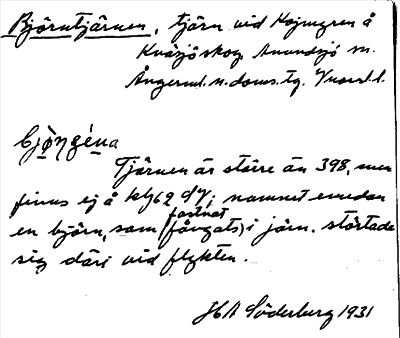 Björntjärnen, tjärn vid Kojmyren å
Kväsjöskog, Anundsjö sn.
Ångerml. n. doms. tg. Vnorrl. l.
Tjärnen är större än 398, men
finns ej å kbl 62 dV; namnet emedan
en björn, som (fångats) i järn, störtade
fastnat
sig däri vid flykten.
JHA Söderburg 1931